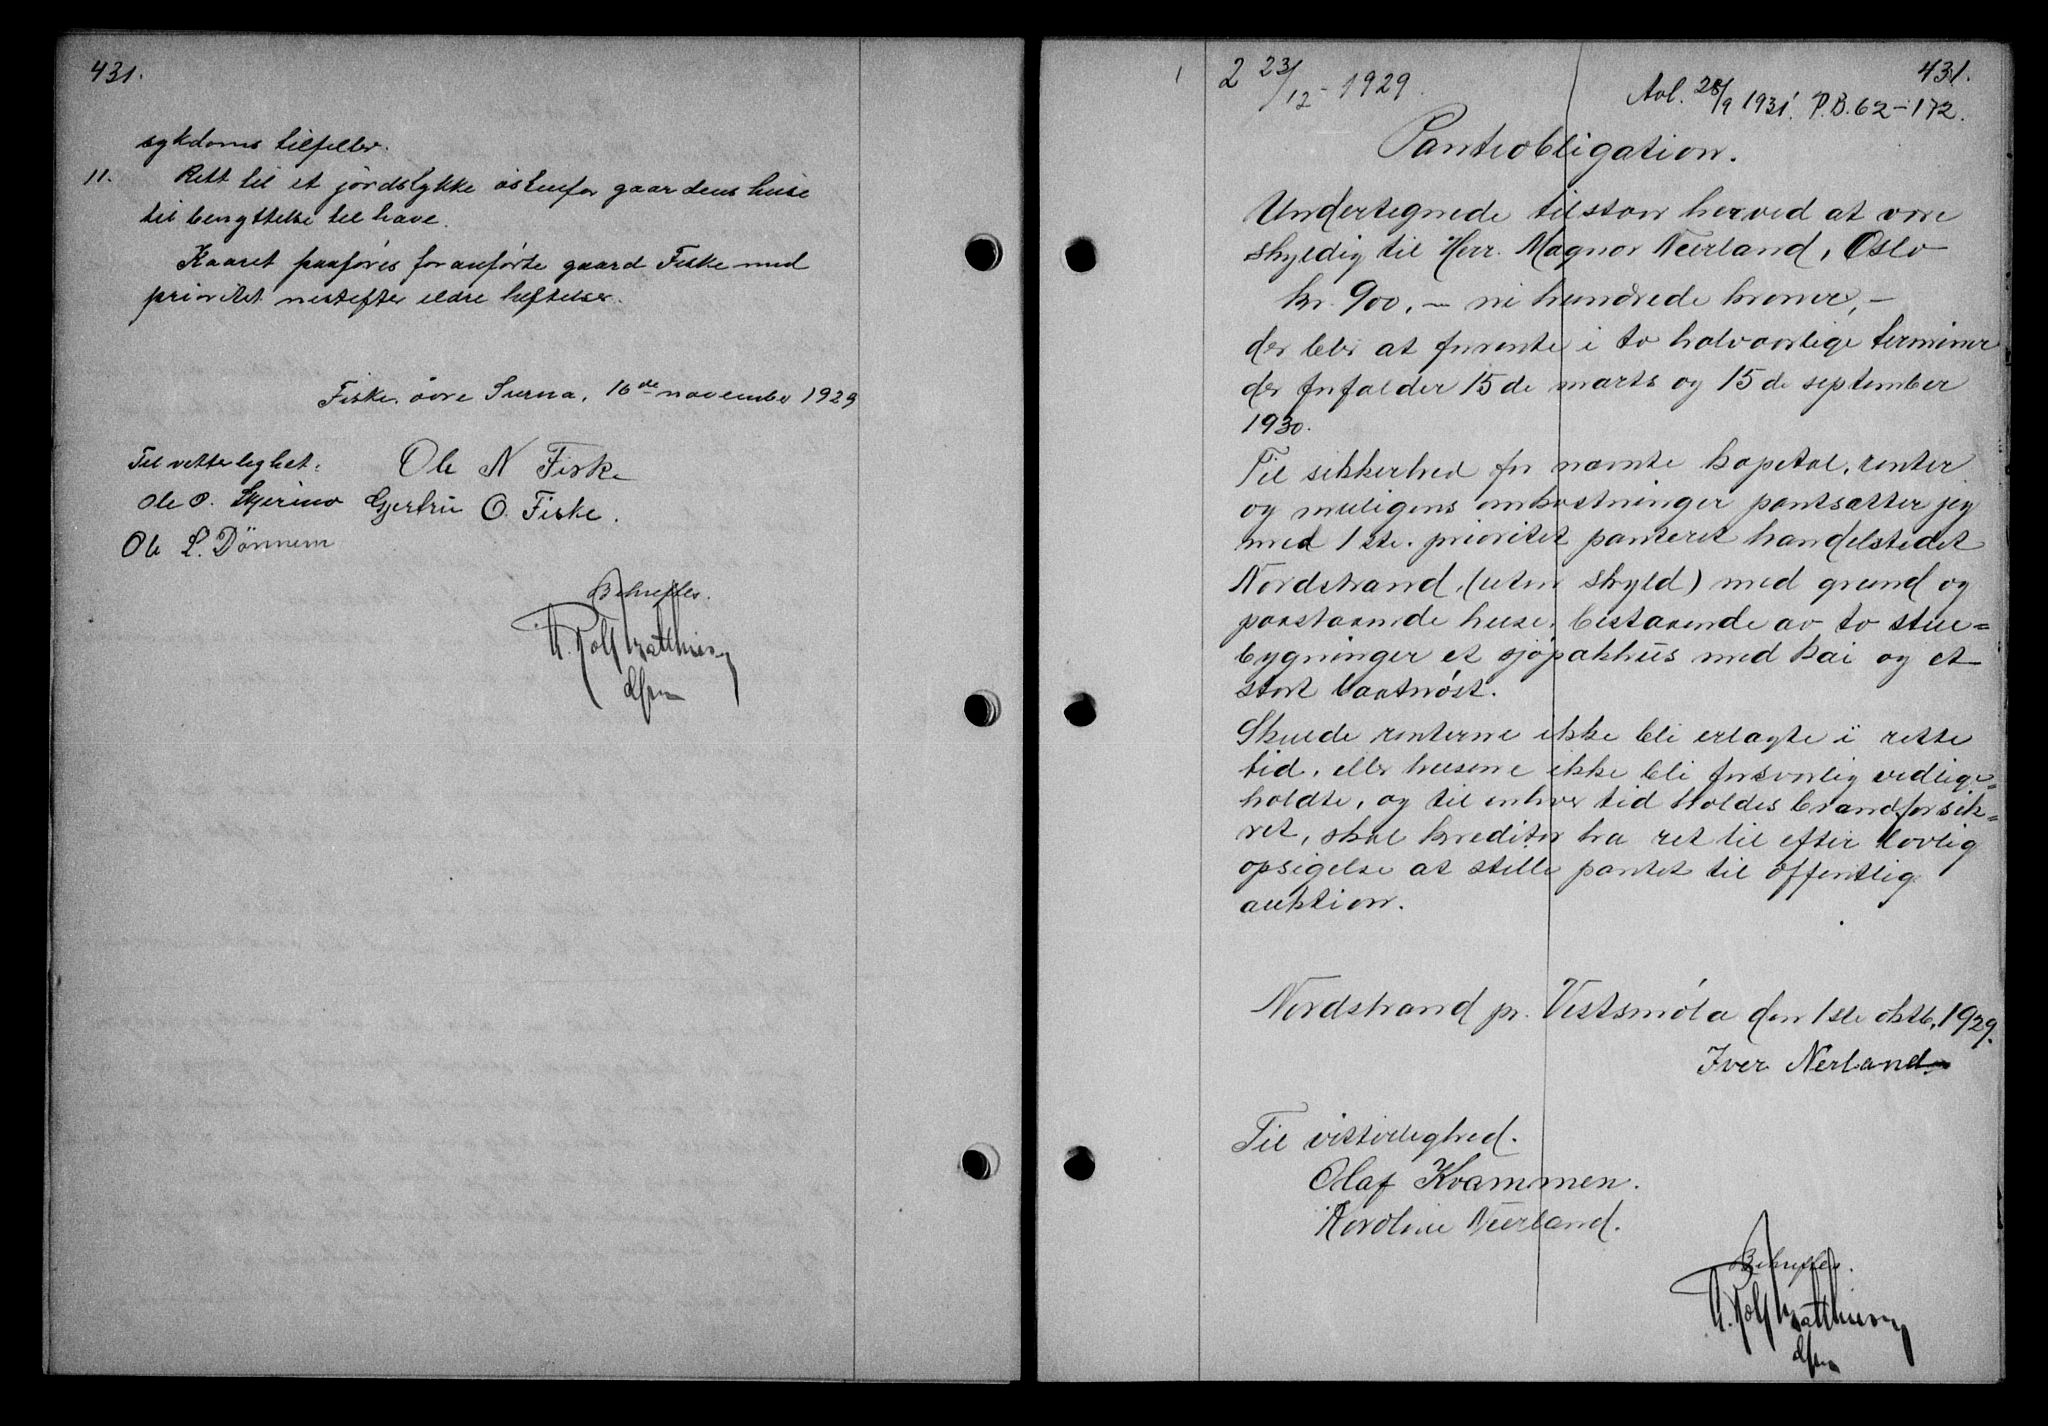 431.
sykdoms tilfeller.
11. Rett til et jordstykke østenfor gaardens huse
til benyttelse til have.
Kaaret paaføres foranførte gaard Fiske med
prioritet nestefter eldre heftelser.
Fiske, øvre Surna, 16de november 1929
Til vitterlighet:
Ole N Fiske
Ole O. Skjermo Gjertru O. Fiske.
Ole L. Dønnem
Bekreftes.
431.
2 23/12-1929.
Avl. 28/9 1931. P.B. 62-172.
Panteobligation.
Undertegnede tilstaar herved at være
skyldig til Herr. Magnor Neerland, Oslo
kr. 900,- ni hundrede kroner,-
der blir at forrente i to halvaarlige terminer
der forfalder 15de marts og 15de september
1930.
Til sikkerhed for nævnte kapital, renter
og muligens omkostninger pantsætter jeg
med 1ste. prioritet panteret handelstedet
Nordstrand, (uten skyld) med grund og
paastaaende huse, bestaaende av to stue=
bygninger et sjøpakhus med kai og et
stort baatnøst.
Skulde renterne ikke bli erlagte i rette
tid, eller husene ikke bli forsvarlig vedlige=
holdte, og til enhver tid holdes brandforsik=
ret, skal kreditor ha ret til efter lovlig
opsigelse at stille pantet til offentlig
auktion.
Nordstrand pr. Vestsmøla den 1ste oktb. 1929.
Iver Nerland
Til vitterlighed.
Olaf Kvammen.
Karoline Neerland.
Bekreftes.